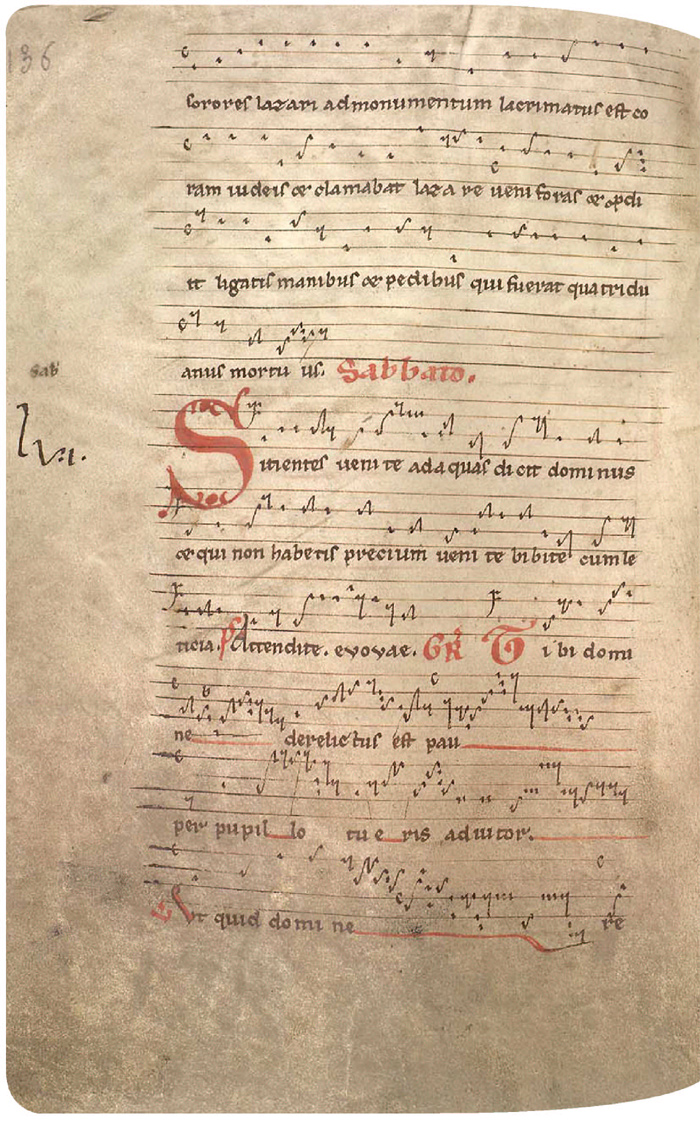 136
sorores lazari ad monumentum lacrimatus est co
ram iudeis et clamabat laza re ueni foras et prodi
it ligatis manibus et pedibus qui fuerat quatridu
anus mortu us. Sabbato.
sab
Sitientes ueni te ad aquas dicit dominus
lvi.
et qui non habetis precium ueni te bibite cum le
ticia. Ps Attendite. evovae. GR Tibi domi
ne derelictus est pau
per pupil lo tu e ris adiutor.
V Vt quid domi ne re